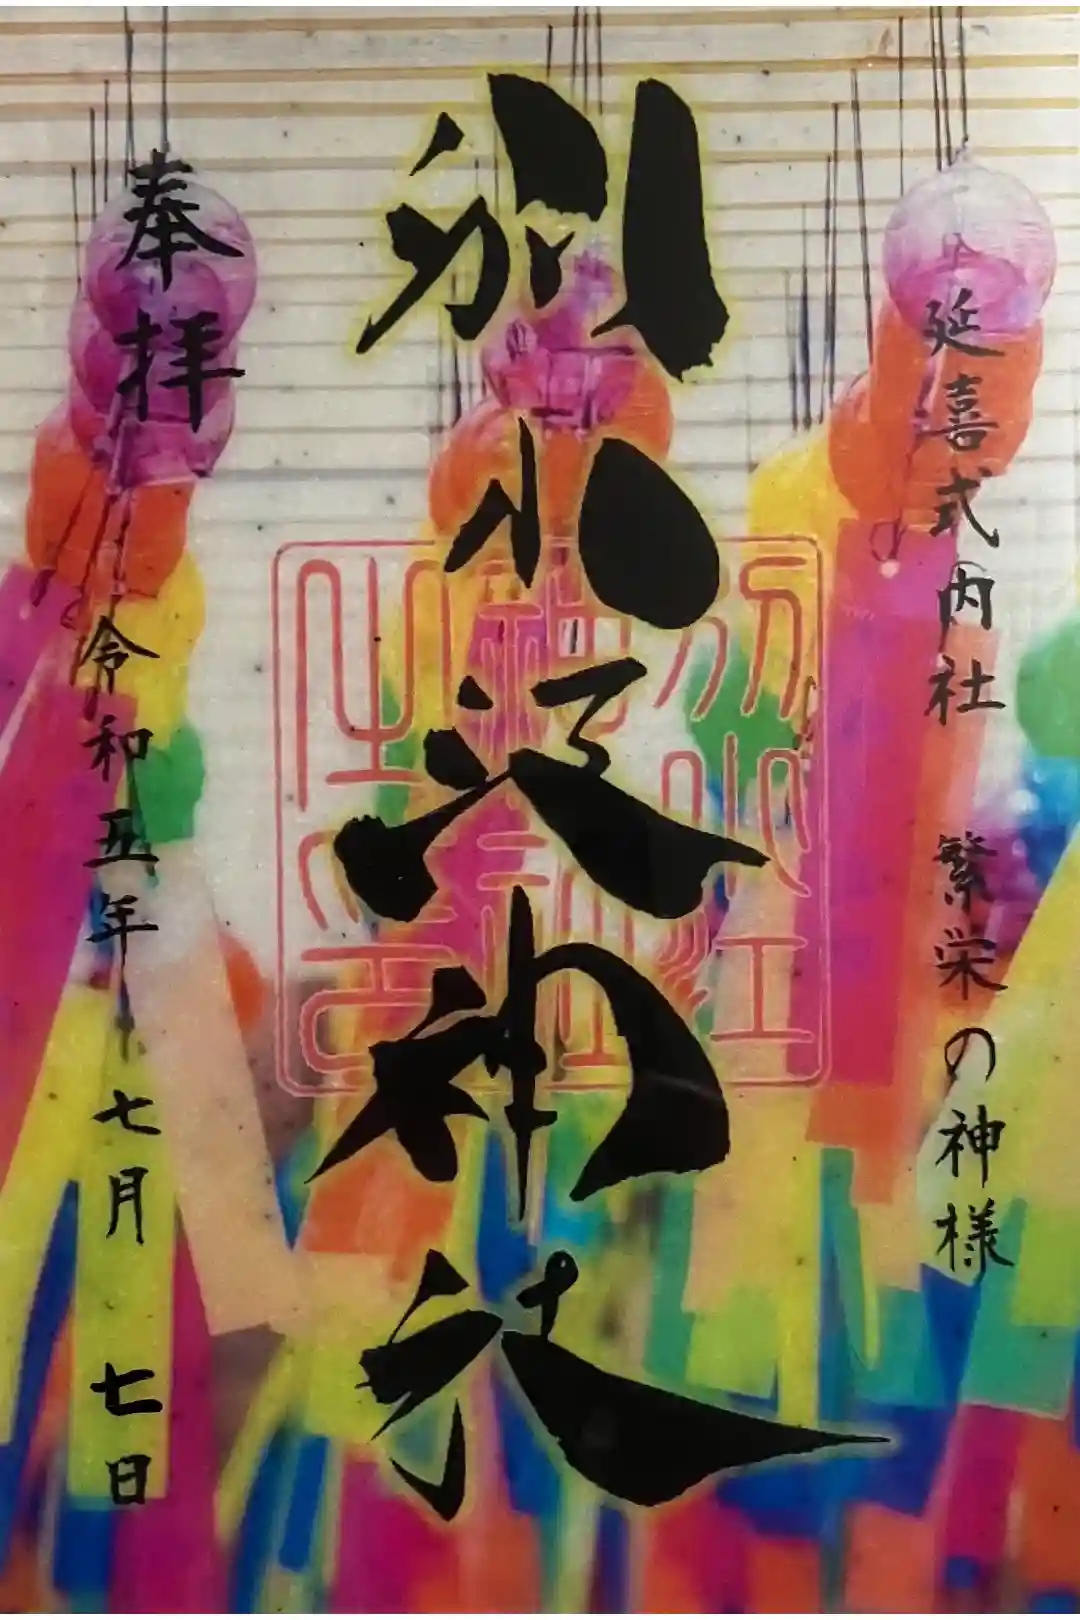 延喜式内社 繁栄の神様
別小江神社
別小江
奉拝
令和五年 七月 七日